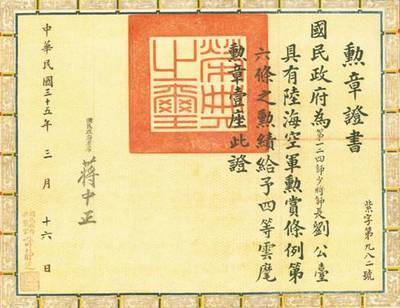 勳章證書
國民政府為第一二四師少將師長劉公臺
具有陸海空軍勳賞條例第
六條之勳績給予四等雲麾
勳章壹座此證
榮典之璽
國民政府主席
蔣中正
中華民國三十五年三月十六日
紫字第九八二號